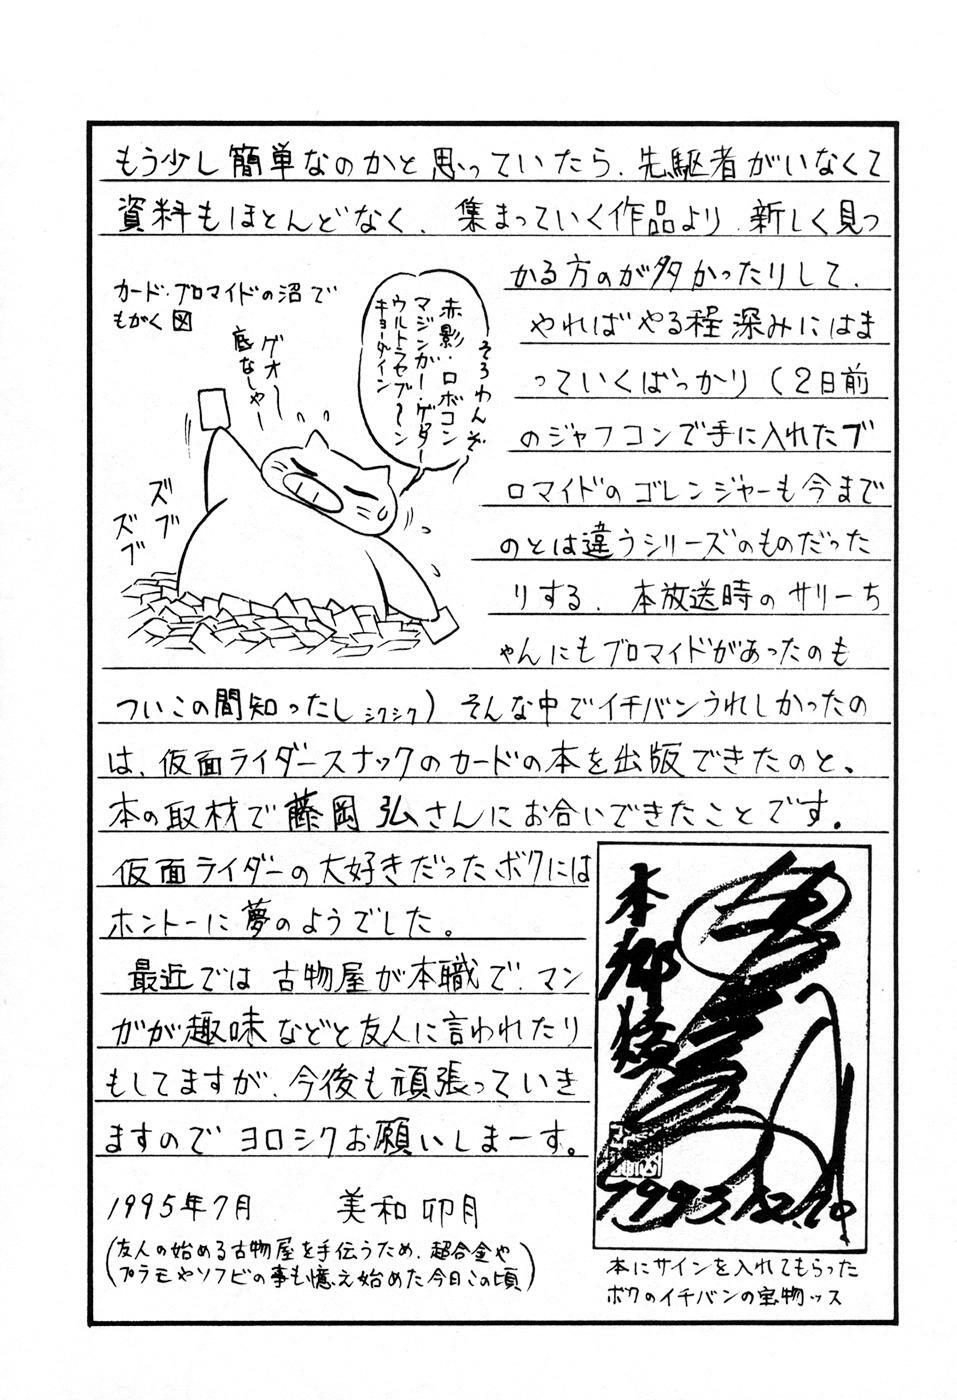 もう少し簡単なのかと思っていたら、先駆者がいなくて
資料もほとんどなく、集まっていく作品より、新しく見つ
かる方のが多かったりして、
やればやる程深みにはま
っていくばっかり（2日前
のジャフコンで手に入れたブ
ロマイドのゴレンジャーも今まで
のとは違うシリーズのものだった
りする、本放送時のサリーち
ゃんにもブロマイドがあったのも
ついこの間知ったし シクシク）そんな中でイチバンうれしかったの
は、仮面ライダースナックのカードの本を出版できたのと、
本の取材で藤岡弘さんにお合いできたことです。
仮面ライダーの大好きだったボクには
ホントーに夢のようでした。
最近では古物屋が本職で、マン
ガが趣味などと友人に言われたり
もしてますが、今後も頑張っていき
ますのでヨロシクお願いしまーす。
1995年7月 美和卯月
（友人の始める古物屋を手伝うため、超合金や
プラモやソフビの事も憶え始めた今日この頃）
カード・ブロマイドの沼で
もがく図
ゲオ〜
底なしゃー
そろわんぞ〜
赤影・ロボコン
マジンガー・ゲター
ウルトラセブ〜ン
キョーダイン
ズブ
ズブ
本郷猛
1993.12.10
本にサインを入れてもらった
ボクのイチバンの宝物ッス